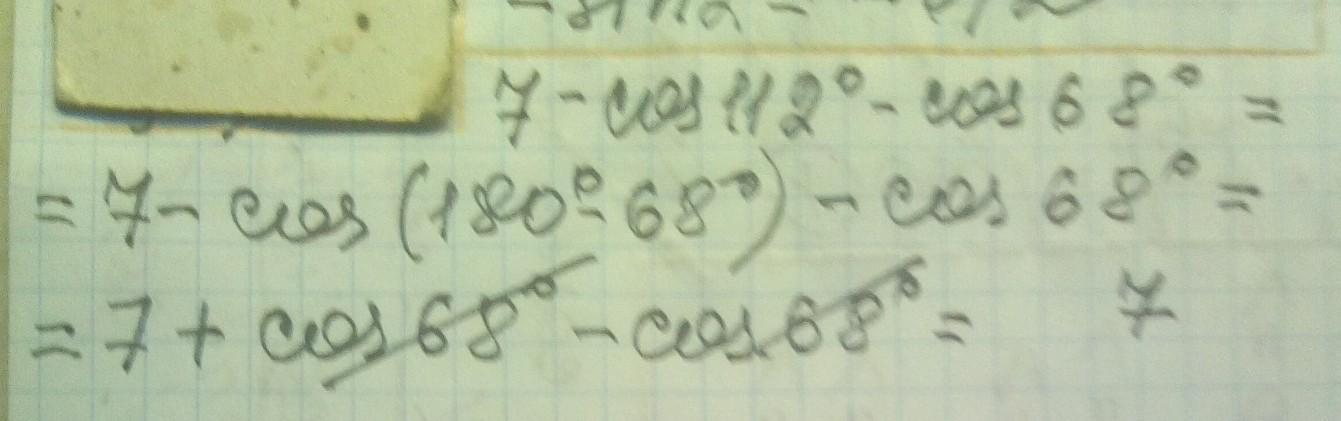 7 - cos 112° - cos 68° =
= 7 - cos (180° - 68°) - cos 68° =
= 7 + cos 68° - cos 68° = 7